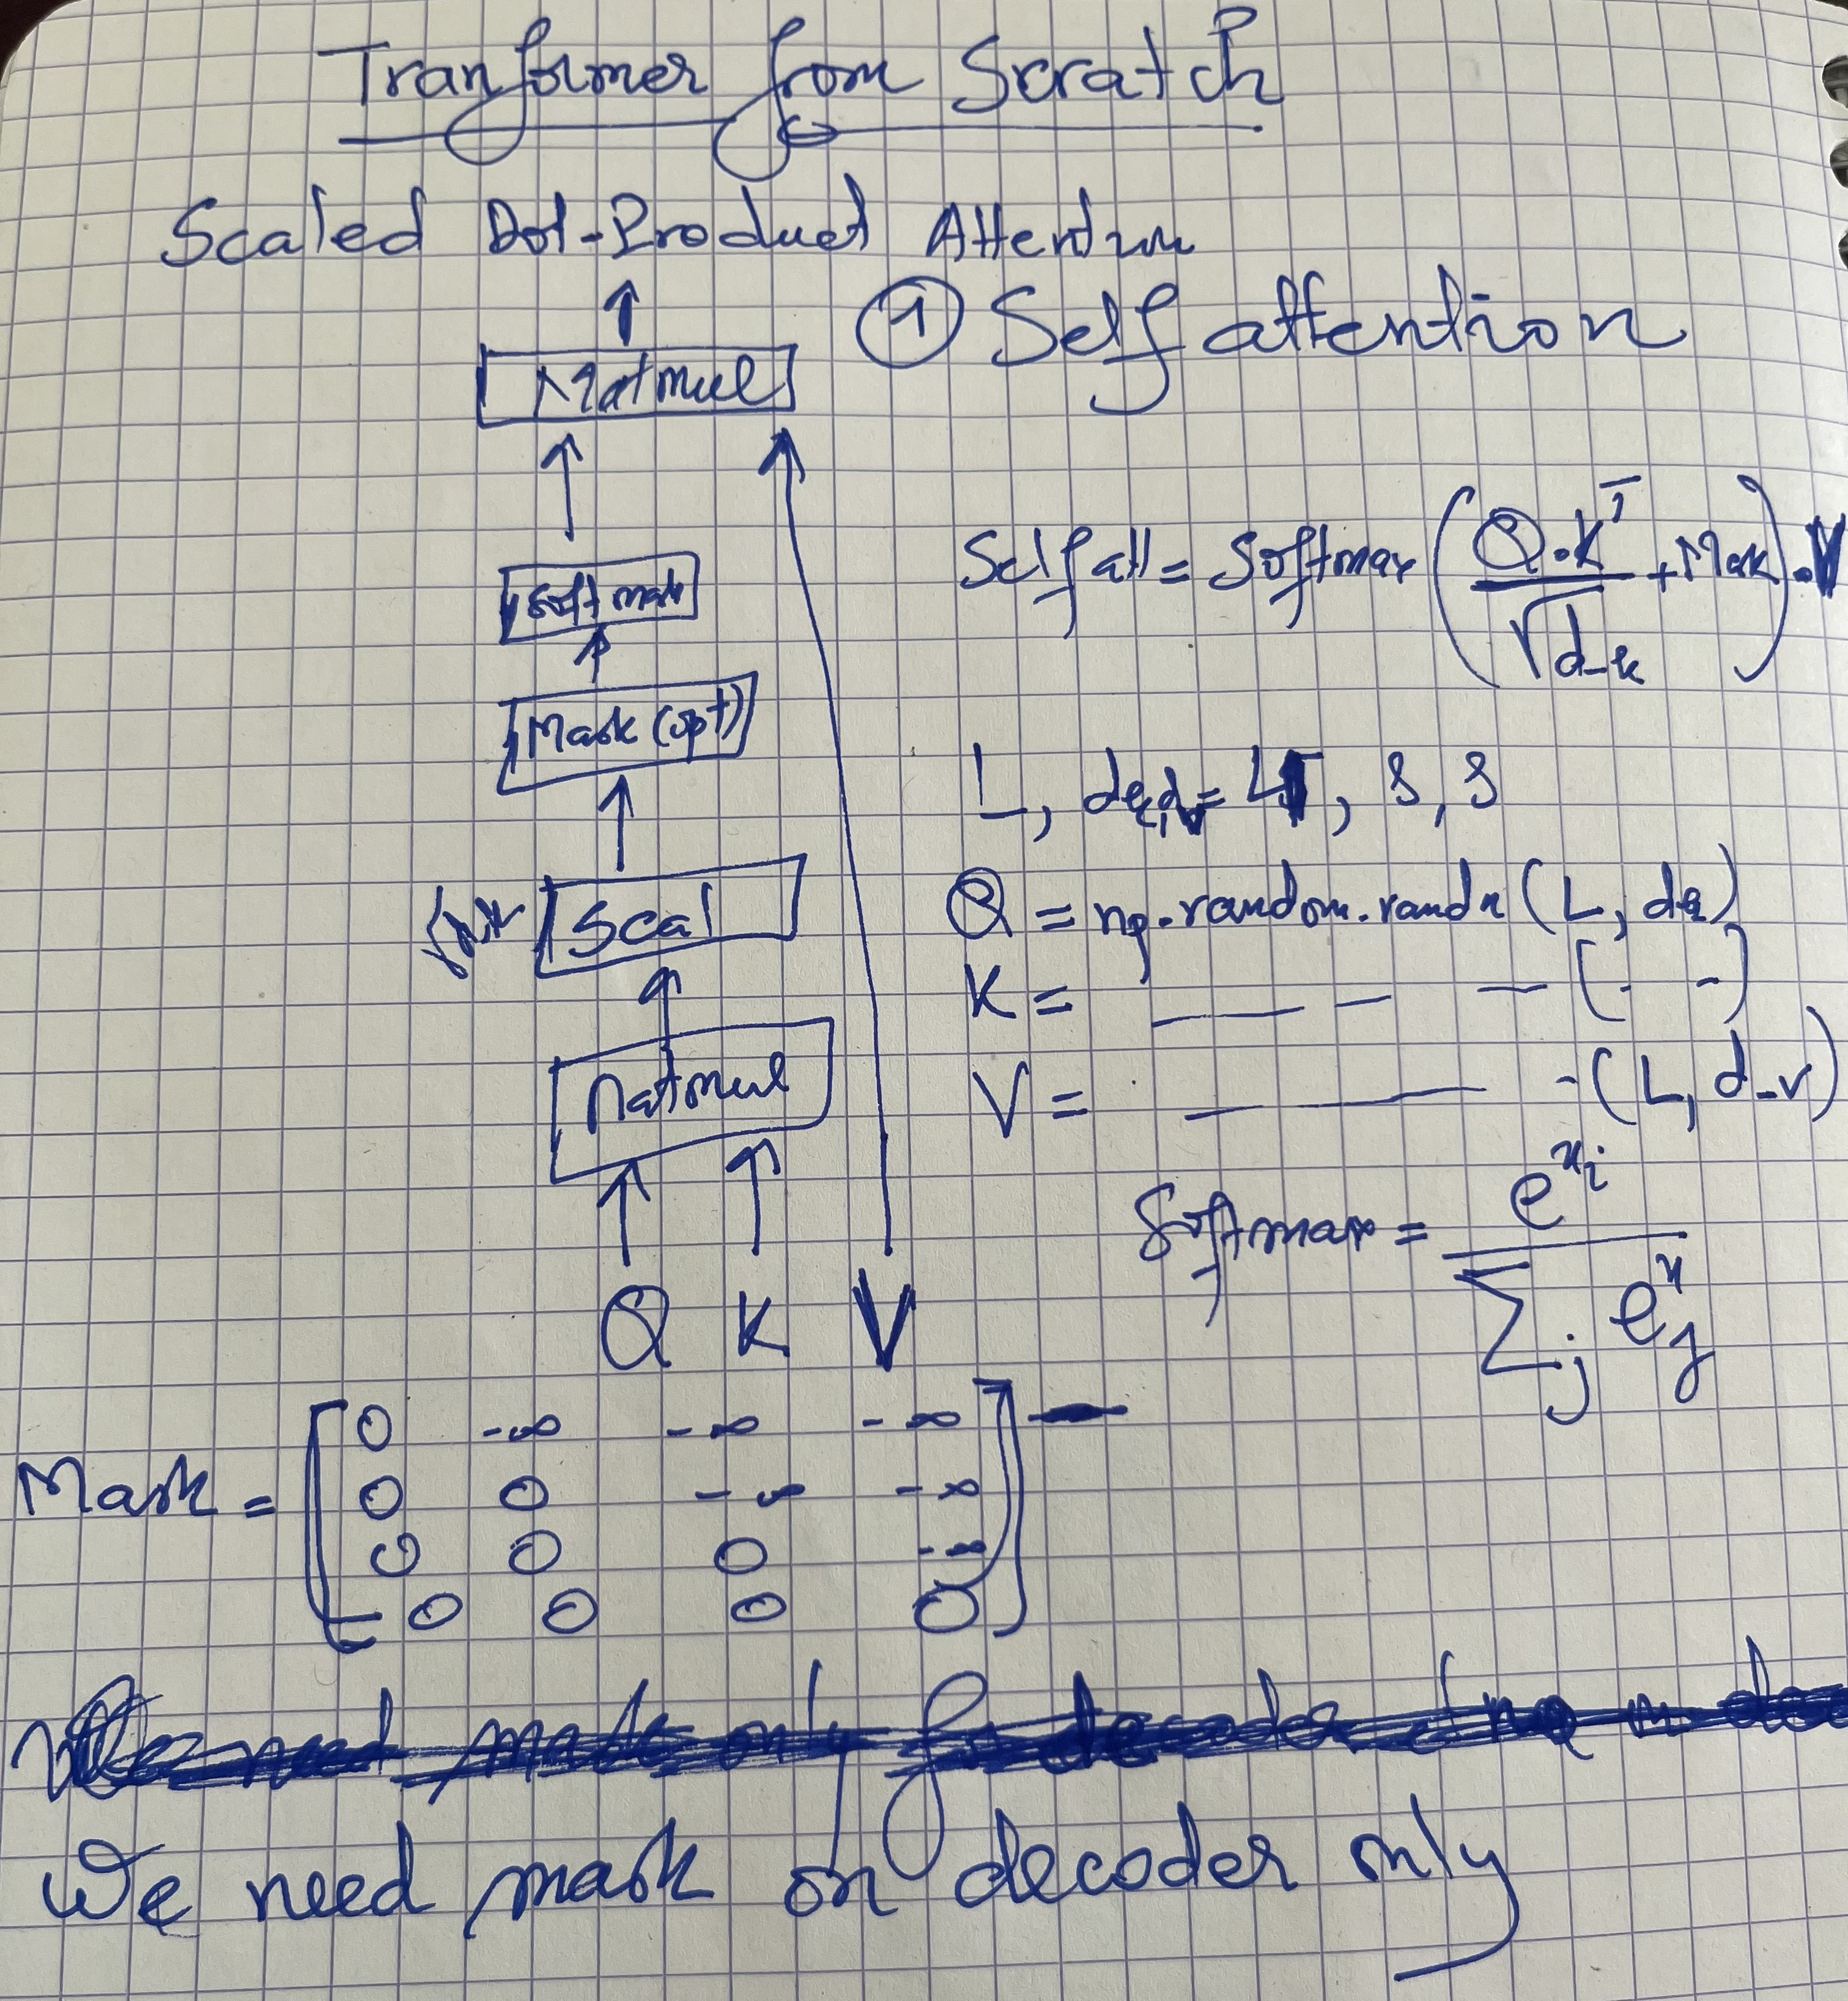 Tranformer from Scratch
Scaled Dot-Product Attention
① Self attention
Matmul
Softmax
Mask (opt)
Scal
Matmul
Q K V
Self att = Softmax (Q·K^T / √d_k + Mask) · V
L, d_k, d_v =
Q = np.random.randn (L, d_k)
K = __ _ _ (- -)
V = __ __ - (L, d_v)
Softmax = e^xi / Σj e^x j
Mask = [0 -∞ -∞ -∞
0 0 -∞ -∞
0 0 0 -∞
0 0 0 0]
We need mask on decoder only